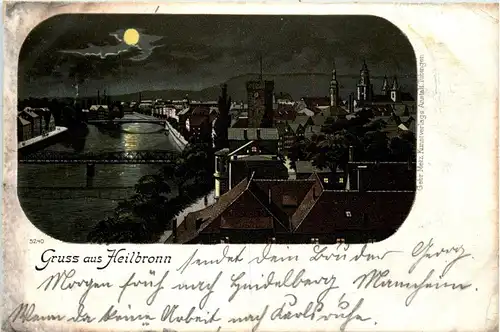 Gebr. Metz, Kunstverlags-Anstalt, Tübingen
5240
Gruss aus Heilbronn sendet dein Bruder Georg.
Morgen früh nach Heidelberg Mannheim.
Wenn da keine Arbeit nach Karlsruhe.